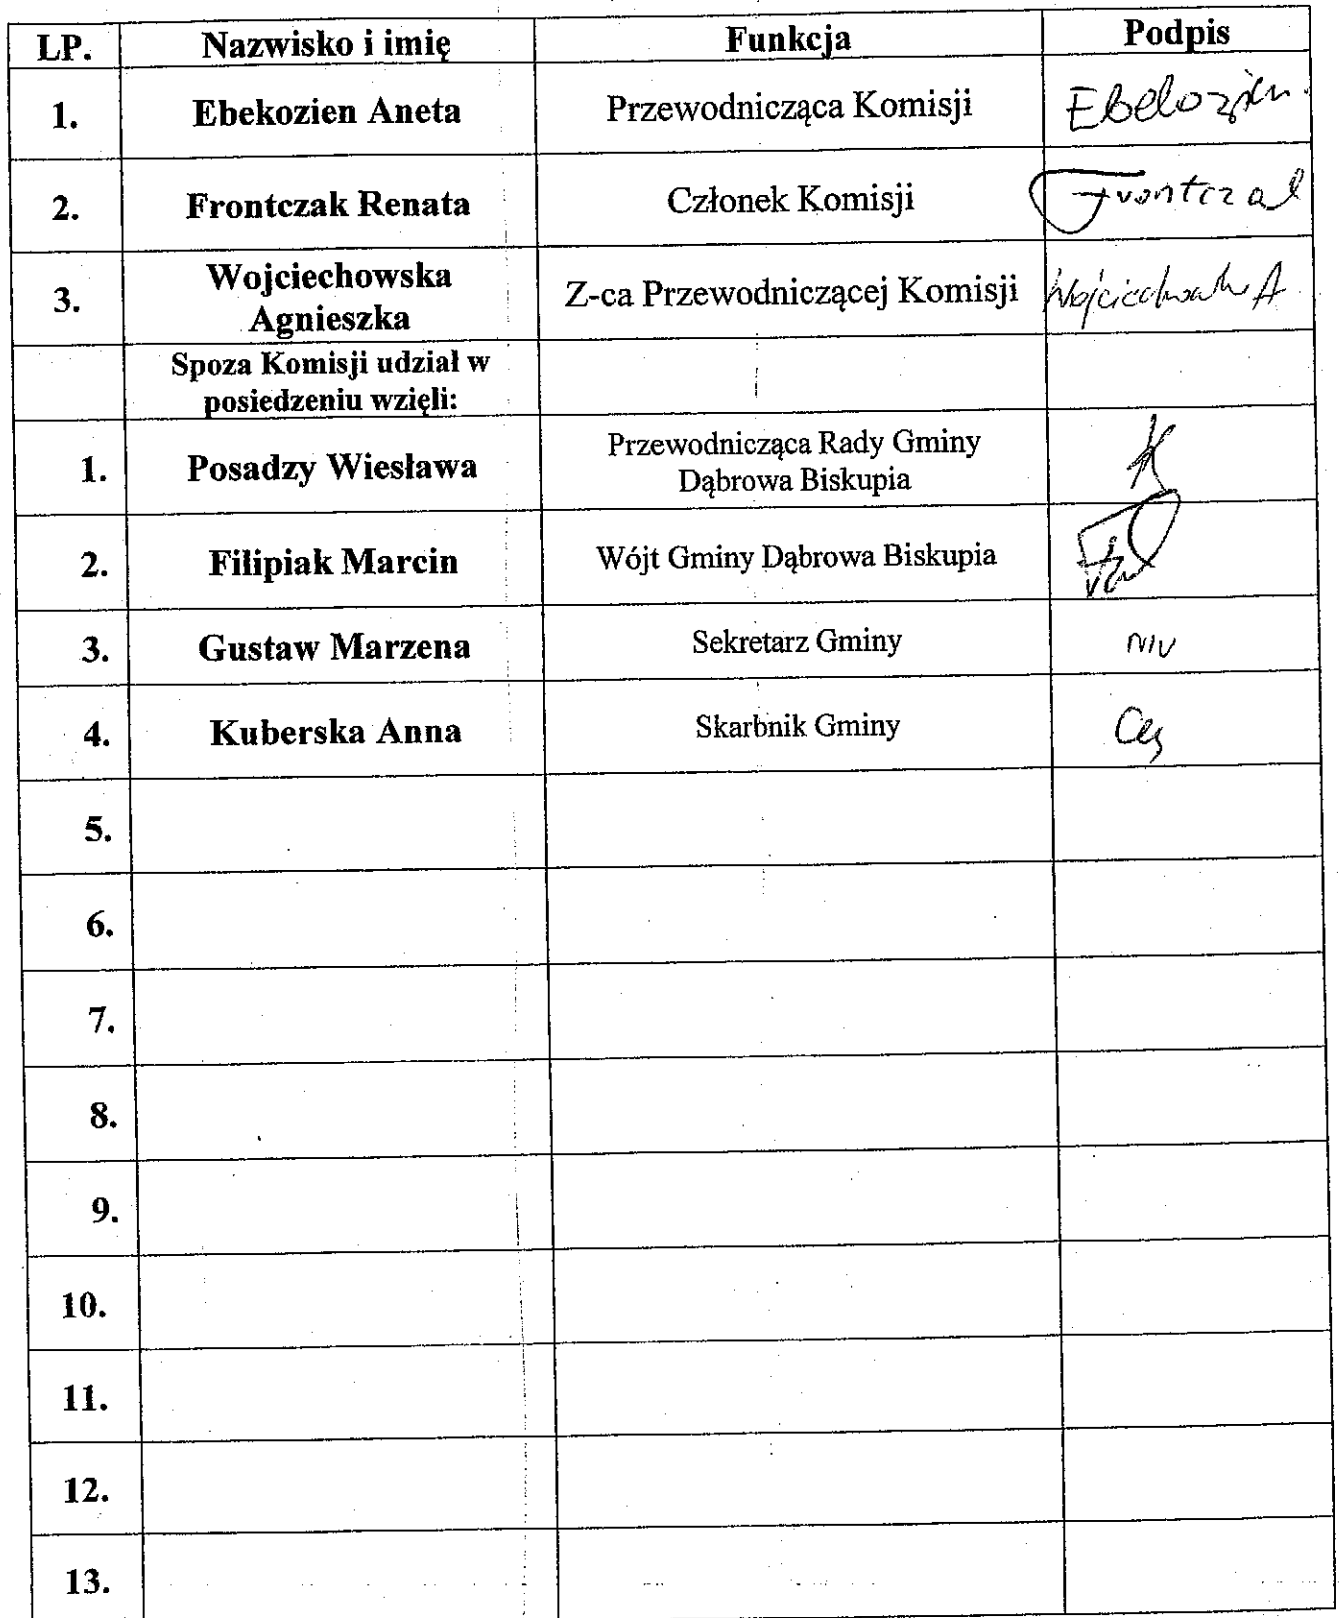 LP. Nazwisko i imię Funkcja Podpis
1. Ebekozien Aneta Przewodnicząca Komisji Ebekozien
2. Frontczak Renata Członek Komisji Frontczak
Wojciechowska
3. Z-ca Przewodniczącej Komisji Wojciechowska A
Agnieszka
Spoza Komisji udział w
posiedzeniu wzięli:
Przewodnicząca Rady Gminy
1. Posadzy Wiesława
Dąbrowa Biskupia
2. Filipiak Marcin Wójt Gminy Dąbrowa Biskupia
3. Gustaw Marzena Sekretarz Gminy
4. Kuberska Anna Skarbnik Gminy
5.
6.
7.
8.
9.
10.
11.
12.
13.